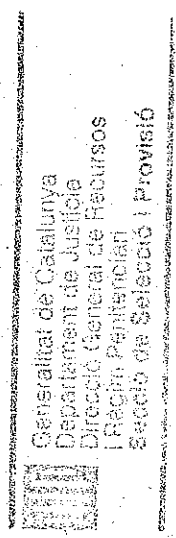 Generalitat de Catalunya
Departament de Justícia
Direcció General de Recursos
i Règim Penitenciari
Secció de Selecció i Provisió